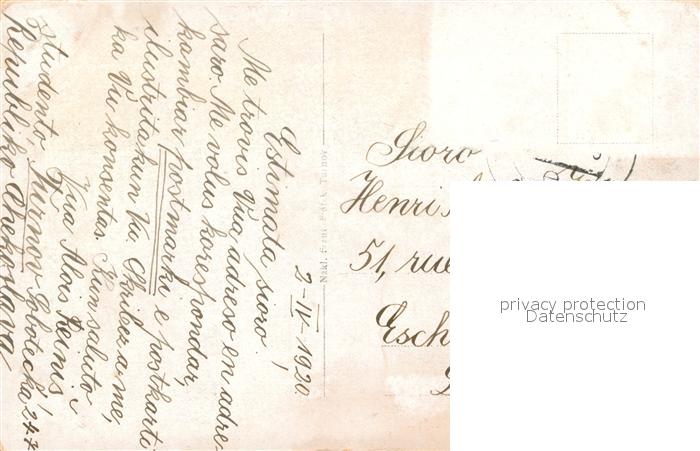 2–IV–1920.
Estimata sioro!
Me trovis Vua adreso en adre-
saro. Me volus korespondar,
kambiar postmarki e postkarti
ilustrita kun Vu. Skribez a me,
ka Vu konsentas. Kun saluto
Vua Alois Reinis
studento Turnov Sobotecká 247
Republiko Chekoslava
Nakl. Turnov
Sioro
Henri
51, rue
Esch
privacy protection
Datenschutz